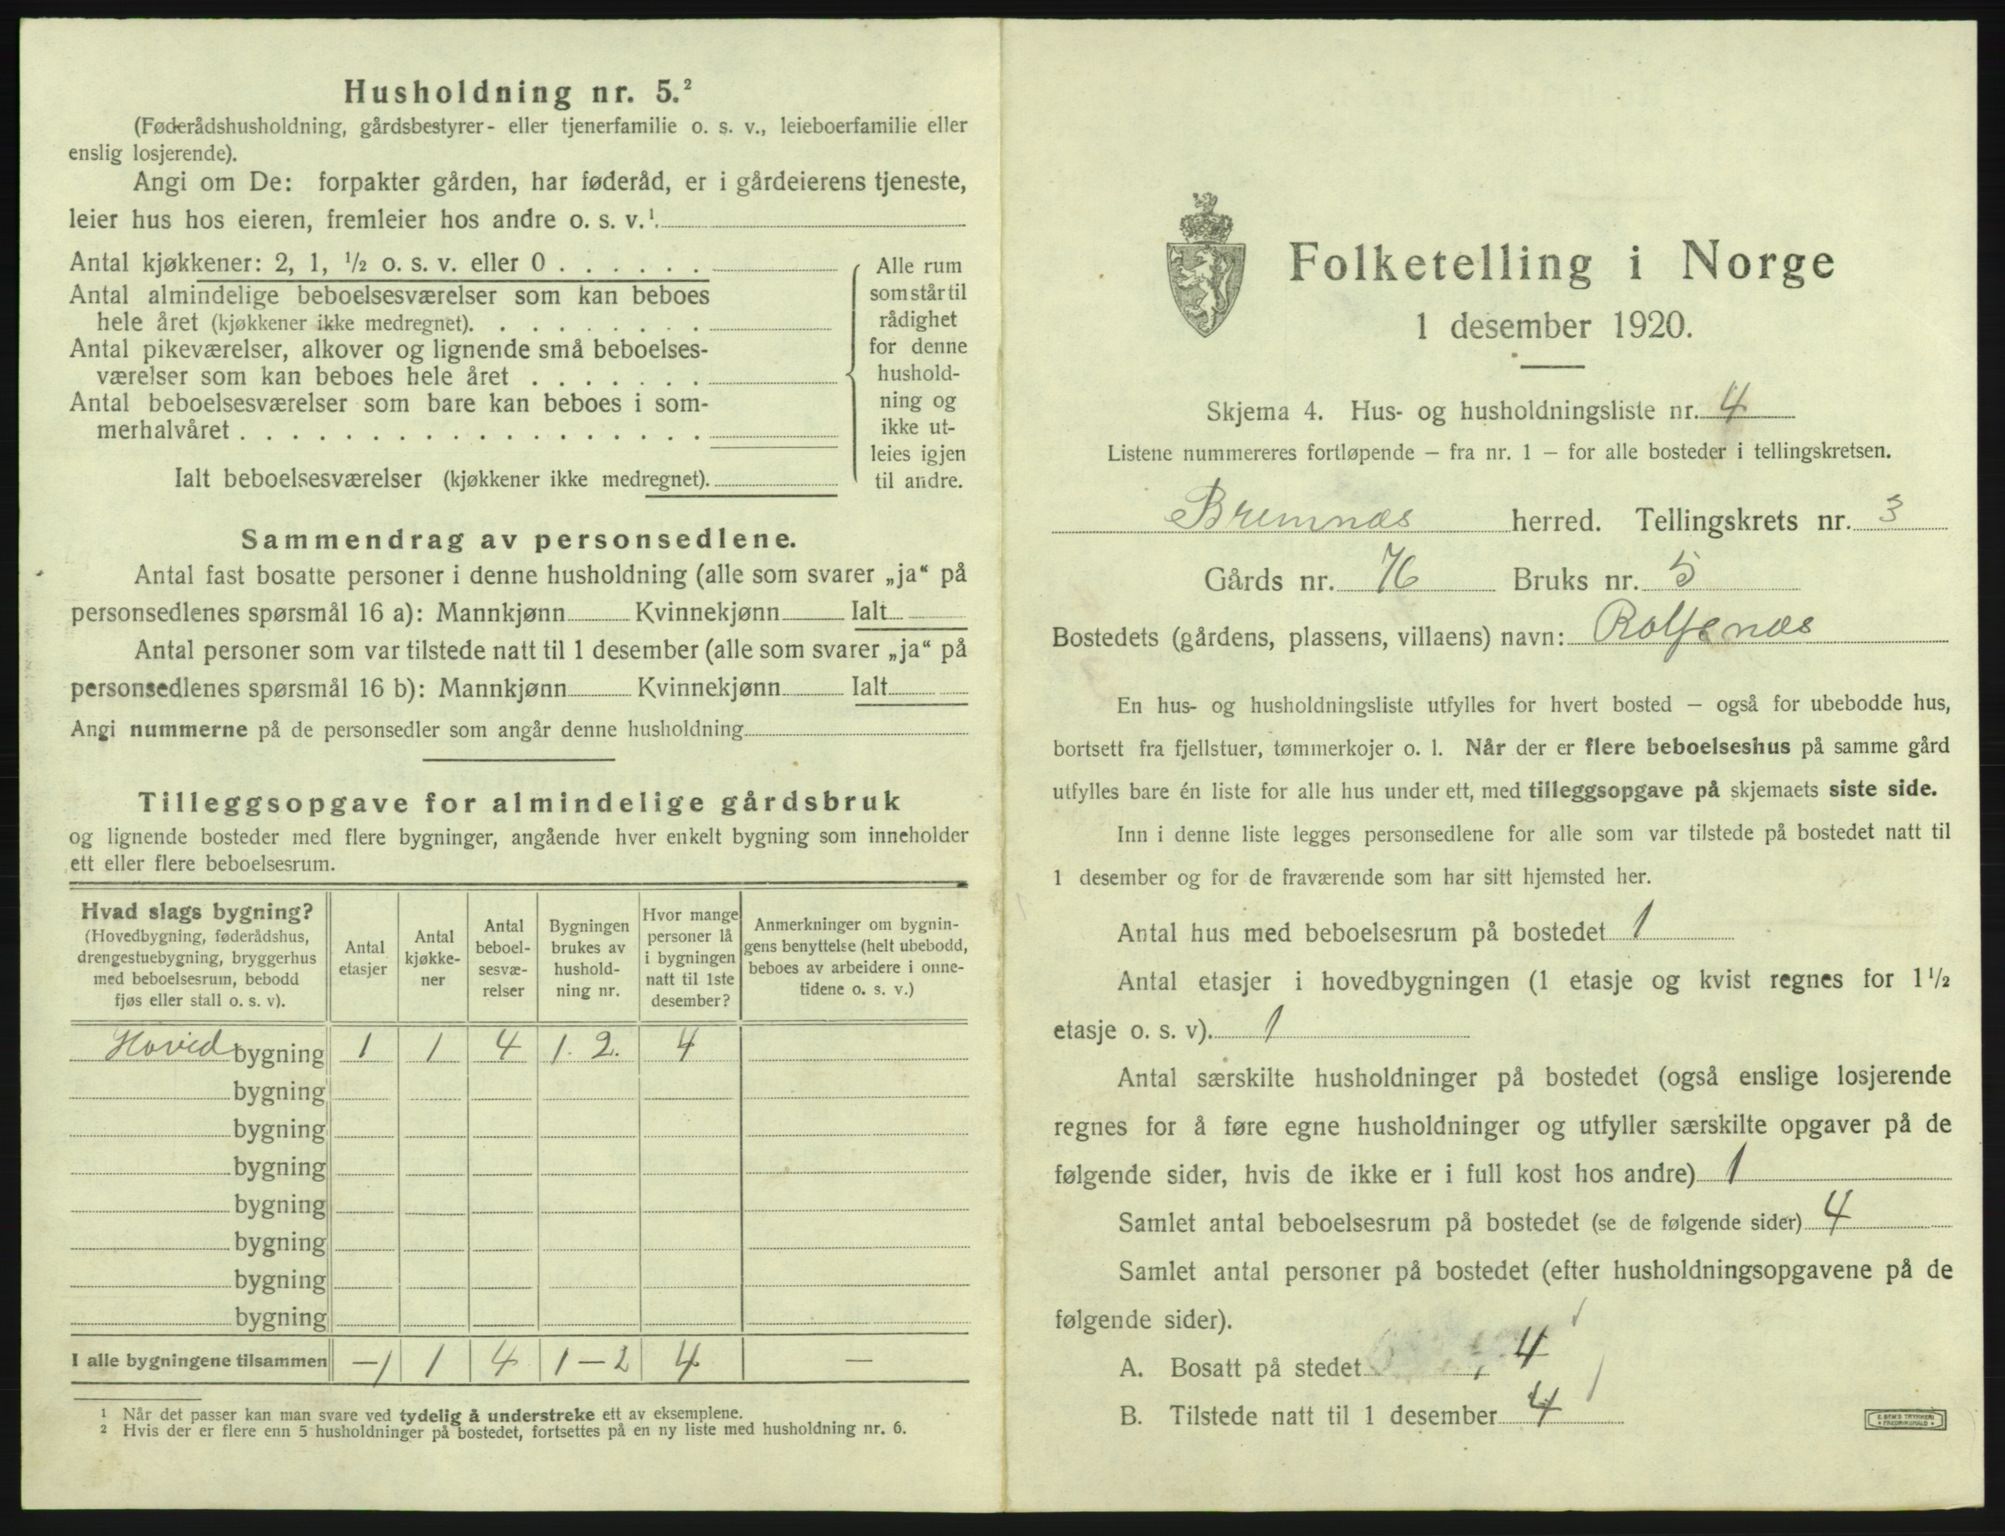 Husholdning nr. 5.²
(Føderådshusholdning, gårdsbestyrer- eller tjenerfamilie o. s. v., leieboerfamilie eller
enslig losjerende).
Angi om De: forpakter gården, har føderåd, er i gårdeierens tjeneste,
leier hus hos eieren, fremleier hos andre o. s. v.¹.
Antal kjøkkener: 2, 1, ½ o. s. v. eller 0 . . . . . .
Antal almindelige beboelsesværelser som kan beboes
hele året (kjøkkener ikke medregnet). . . . . . . . .
Antal pikeværelser, alkover og lignende små beboelses-
værelser som kan beboes hele året . . . . . . .
Antal beboelsesværelser som bare kan beboes i som-
merhalvåret . . . . . . . . . . . . . . . . . .
Ialt beboelsesværelser (kjøkkener ikke medregnet).
Alle rum
som står til
rådighet
for denne
hushold-
ning og
ikke ut-
leies igjen
til andre.
Sammendrag av personsedlene.
Antal fast bosatte personer i denne husholdning (alle som svarer „ja“ på
personsedlenes spørsmål 16 a): Mannkjønn Kvinnekjønn Ialt
Antal personer som var tilstede natt til 1 desember (alle som svarer „ja“ på
personsedlenes spørsmål 16 b): Mannkjønn Kvinnekjønn Ialt
Angi nummerne på de personsedler som angår denne husholdning
Tilleggsopgave for almindelige gårdsbruk
og lignende bosteder med flere bygninger, angående hver enkelt bygning som inneholder
ett eller flere beboelsesrum.
Hvad slags bygning?
(Hovedbygning, føderådshus,
drengestuebygning, bryggerhus
med beboelsesrum, bebodd
fjøs eller stall o. s. v).
Antal
etasjer
Antal
kjøkke-
ner
Antal
beboel-
sesvæ-
relser
Bygningen
brukes av
hushold-
ning nr.
Hvor mange
personer lå
i bygningen
natt til 1ste
desember?
Anmerkninger om bygnin-
gens benyttelse (helt ubebodd,
beboes av arbeidere i onne-
tidene o. s. v.)
Hovedbygning 1 1 4 1. 2. 4
bygning
bygning
bygning
bygning
bygning
bygning
bygning
I alle bygningene tilsammen –1 1 4 1–2 4 —
¹ Når det passer kan man svare ved tydelig å understreke ett av eksemplene.
² Hvis der er flere enn 5 husholdninger på bostedet, fortsettes på en ny liste med husholdning nr. 6.
Folketelling i Norge
1 desember 1920.
Skjema 4. Hus- og husholdningsliste nr. 4
Listene nummereres fortløpende – fra nr. 1 – for alle bosteder i tellingskretsen.
Bremnæs herred. Tellingskrets nr. 3
Gårds nr. 76 Bruks nr. 5
Bostedets (gårdens, plassens, villaens) navn: Rolfsnæs
En hus- og husholdningsliste utfylles for hvert bosted – også for ubebodde hus,
bortsett fra fjellstuer, tømmerkojer o. l. Når der er flere beboelseshus på samme gård
utfylles bare én liste for alle hus under ett, med tilleggsopgave på skjemaets siste side.
Inn i denne liste legges personsedlene for alle som var tilstede på bostedet natt til
1 desember og for de fraværende som har sitt hjemsted her.
Antal hus med beboelsesrum på bostedet 1
Antal etasjer i hovedbygningen (1 etasje og kvist regnes for 1½
etasje o. s. v). 1
Antal særskilte husholdninger på bostedet (også enslige losjerende
regnes for å føre egne husholdninger og utfyller særskilte opgaver på de
følgende sider, hvis de ikke er i full kost hos andre) 1
Samlet antal beboelsesrum på bostedet (se de følgende sider) 4
Samlet antal personer på bostedet (efter husholdningsopgavene på de
følgende sider).
A. Bosatt på stedet 4
B. Tilstede natt til 1 desember 4